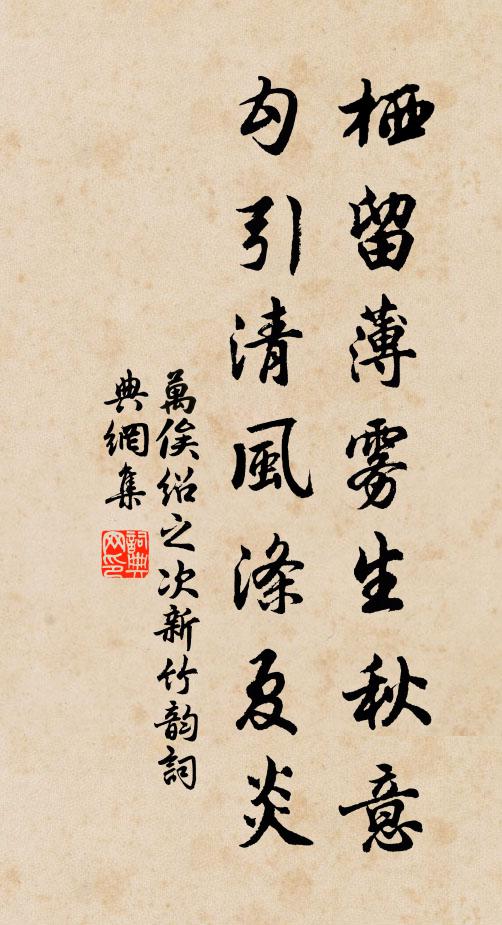 栖留薄雾生秋意
勾引清風涤夏炎
萬俟绍之次新竹韵詞
典網集
詞典网印